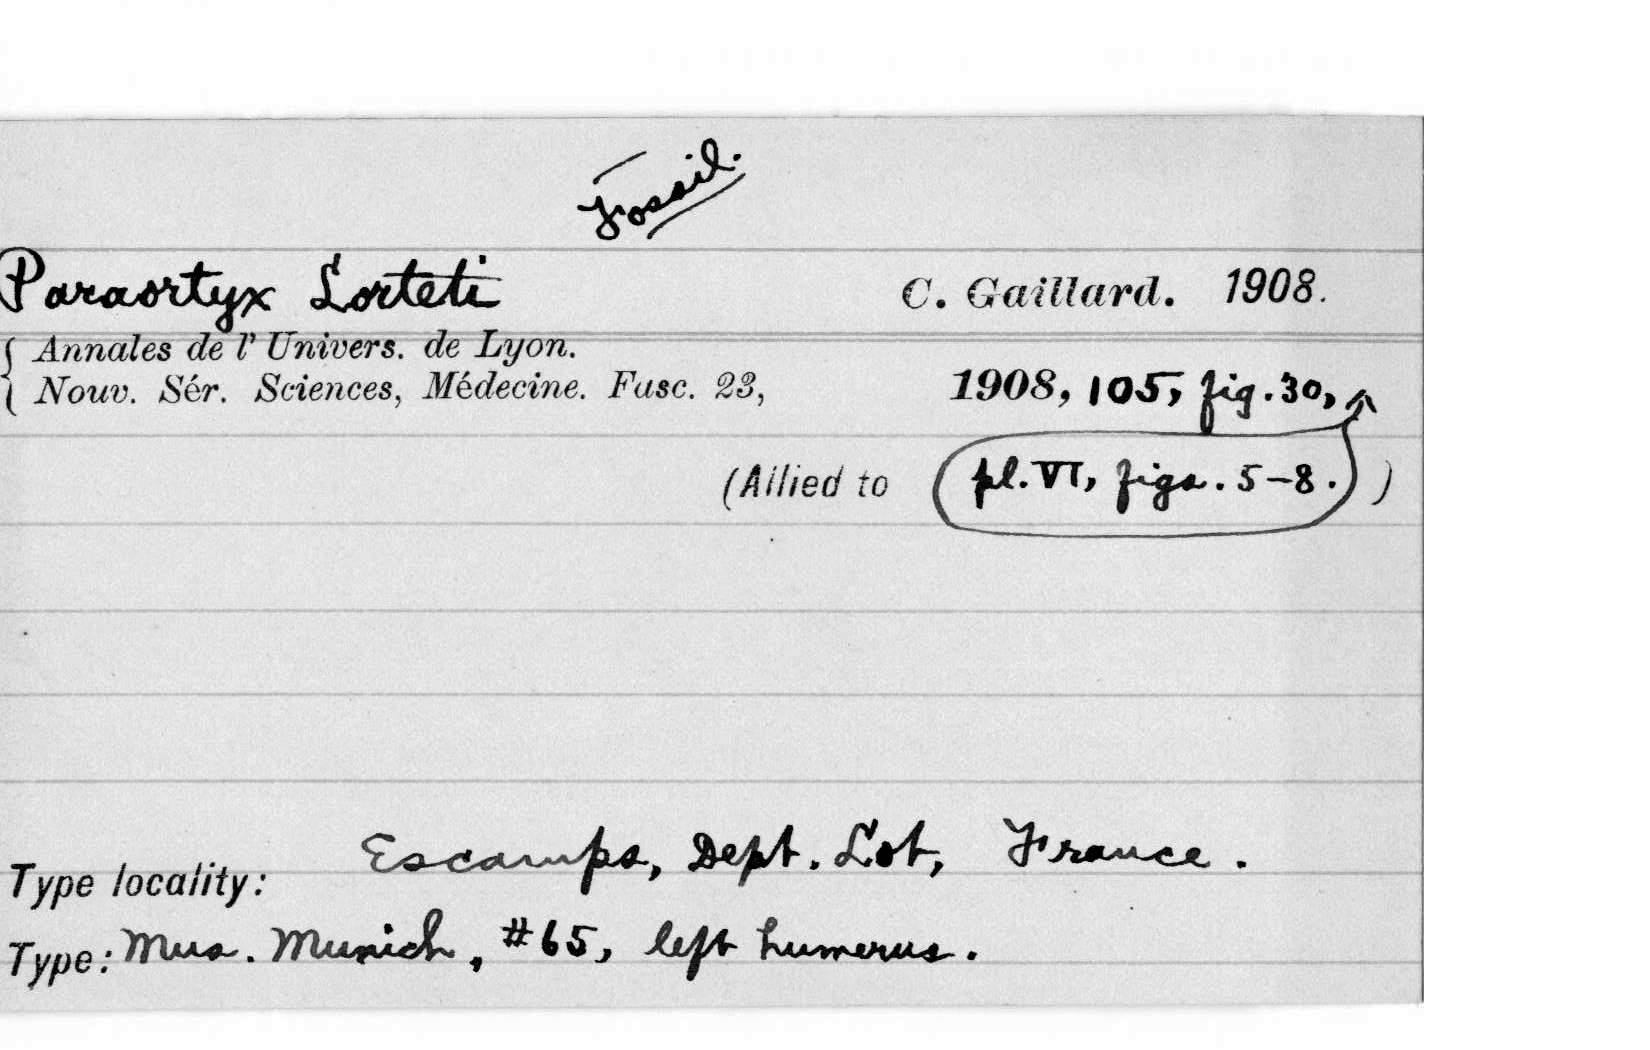 Fossil.
Paraortyx Lorteti C. Gaillard. 1908.
Annales de l' Univers. de Lyon.
Nouv. Sér. Sciences, Médecine. Fasc. 23, 1908, 105, fig. 30,
(Allied to pl. VI, figs. 5-8. )
Type locality: Escamps, Dept. Lot, France.
Type: Mus. Munich, #65, left humerus.